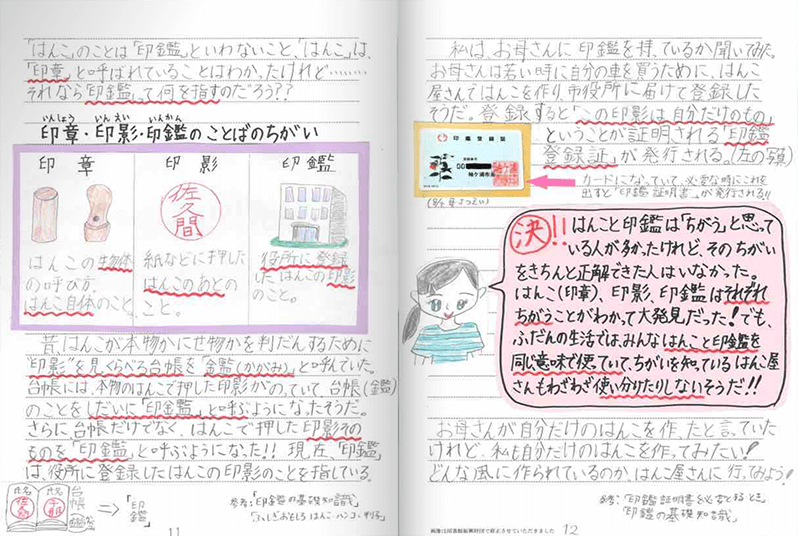 「はんこ」のことは「印鑑」といわないこと、「はんこ」は、
「印章」と呼ばれていることはわかったけれど………
それなら「印鑑」って何を指すのだろう??
いんしょう いんえい いんかん
印章・印影・印鑑のことばのちがい
印章
はんこの生物体
の呼び方。
はんこ自体のこと。
印影
佐久間
紙などに押した
はんこのあとの
こと。
印鑑
役所に登録
したはんこの印影
のこと。
昔、はんこが本物かにせ物かを判だんするために
"印影"を見くらべる台帳を"鑑(かがみ)"と呼んでいた。
台帳には、本物のはんこで押した印影がのっていて台帳(鑑)
のことをしだいに「印鑑」と呼ぶようになったそうだ。
さらに台帳だけでなく、はんこで押した印影その
ものを「印鑑」と呼ぶようになった!! 現在、「印鑑」
は、役所に登録したはんこの印影のことを指している。
氏名
氏名
台帳
⇒「印鑑」
参考:「印鑑の基礎知識」
11
私は、お母さんに印鑑を持っているか聞いてみた。
お母さんは若い時に自分の車を買うために、はんこ
屋さんではんこを作り、市役所に届けて登録した
そうだ。登録すると「この印影は自分だけのもの」
ということが証明される「印鑑
登録証」が発行される。(左の写真)
印鑑登録証
袖ケ浦市
カードになっていて、必要な時にこれを
出すと「印鑑証明書」が発行される!!
決!!はんこと印鑑は「ちがう」と思って
いる人が多かったけれど、そのちがい
をきちんと正解できた人はいなかった。
はんこ(印章)、印影、印鑑はそれぞれ
ちがうことがわかって大発見だった!でも、
ふだんの生活では、みんなはんこと印鑑を
同じ意味で使っていて、ちがいを知っているはんこ屋
さんもわざわざ使い分けたりしないそうだ!!
お母さんが自分だけのはんこを作ったと言っていた
けれど、私も自分だけのはんこを作ってみたい!
どんな風に作られているのか、はんこ屋さんに行ってみよう!
参考:「印鑑証明書を必要とするとき」
「印鑑の基礎知識」
画像は図書館振興財団で修正させていただきました
12